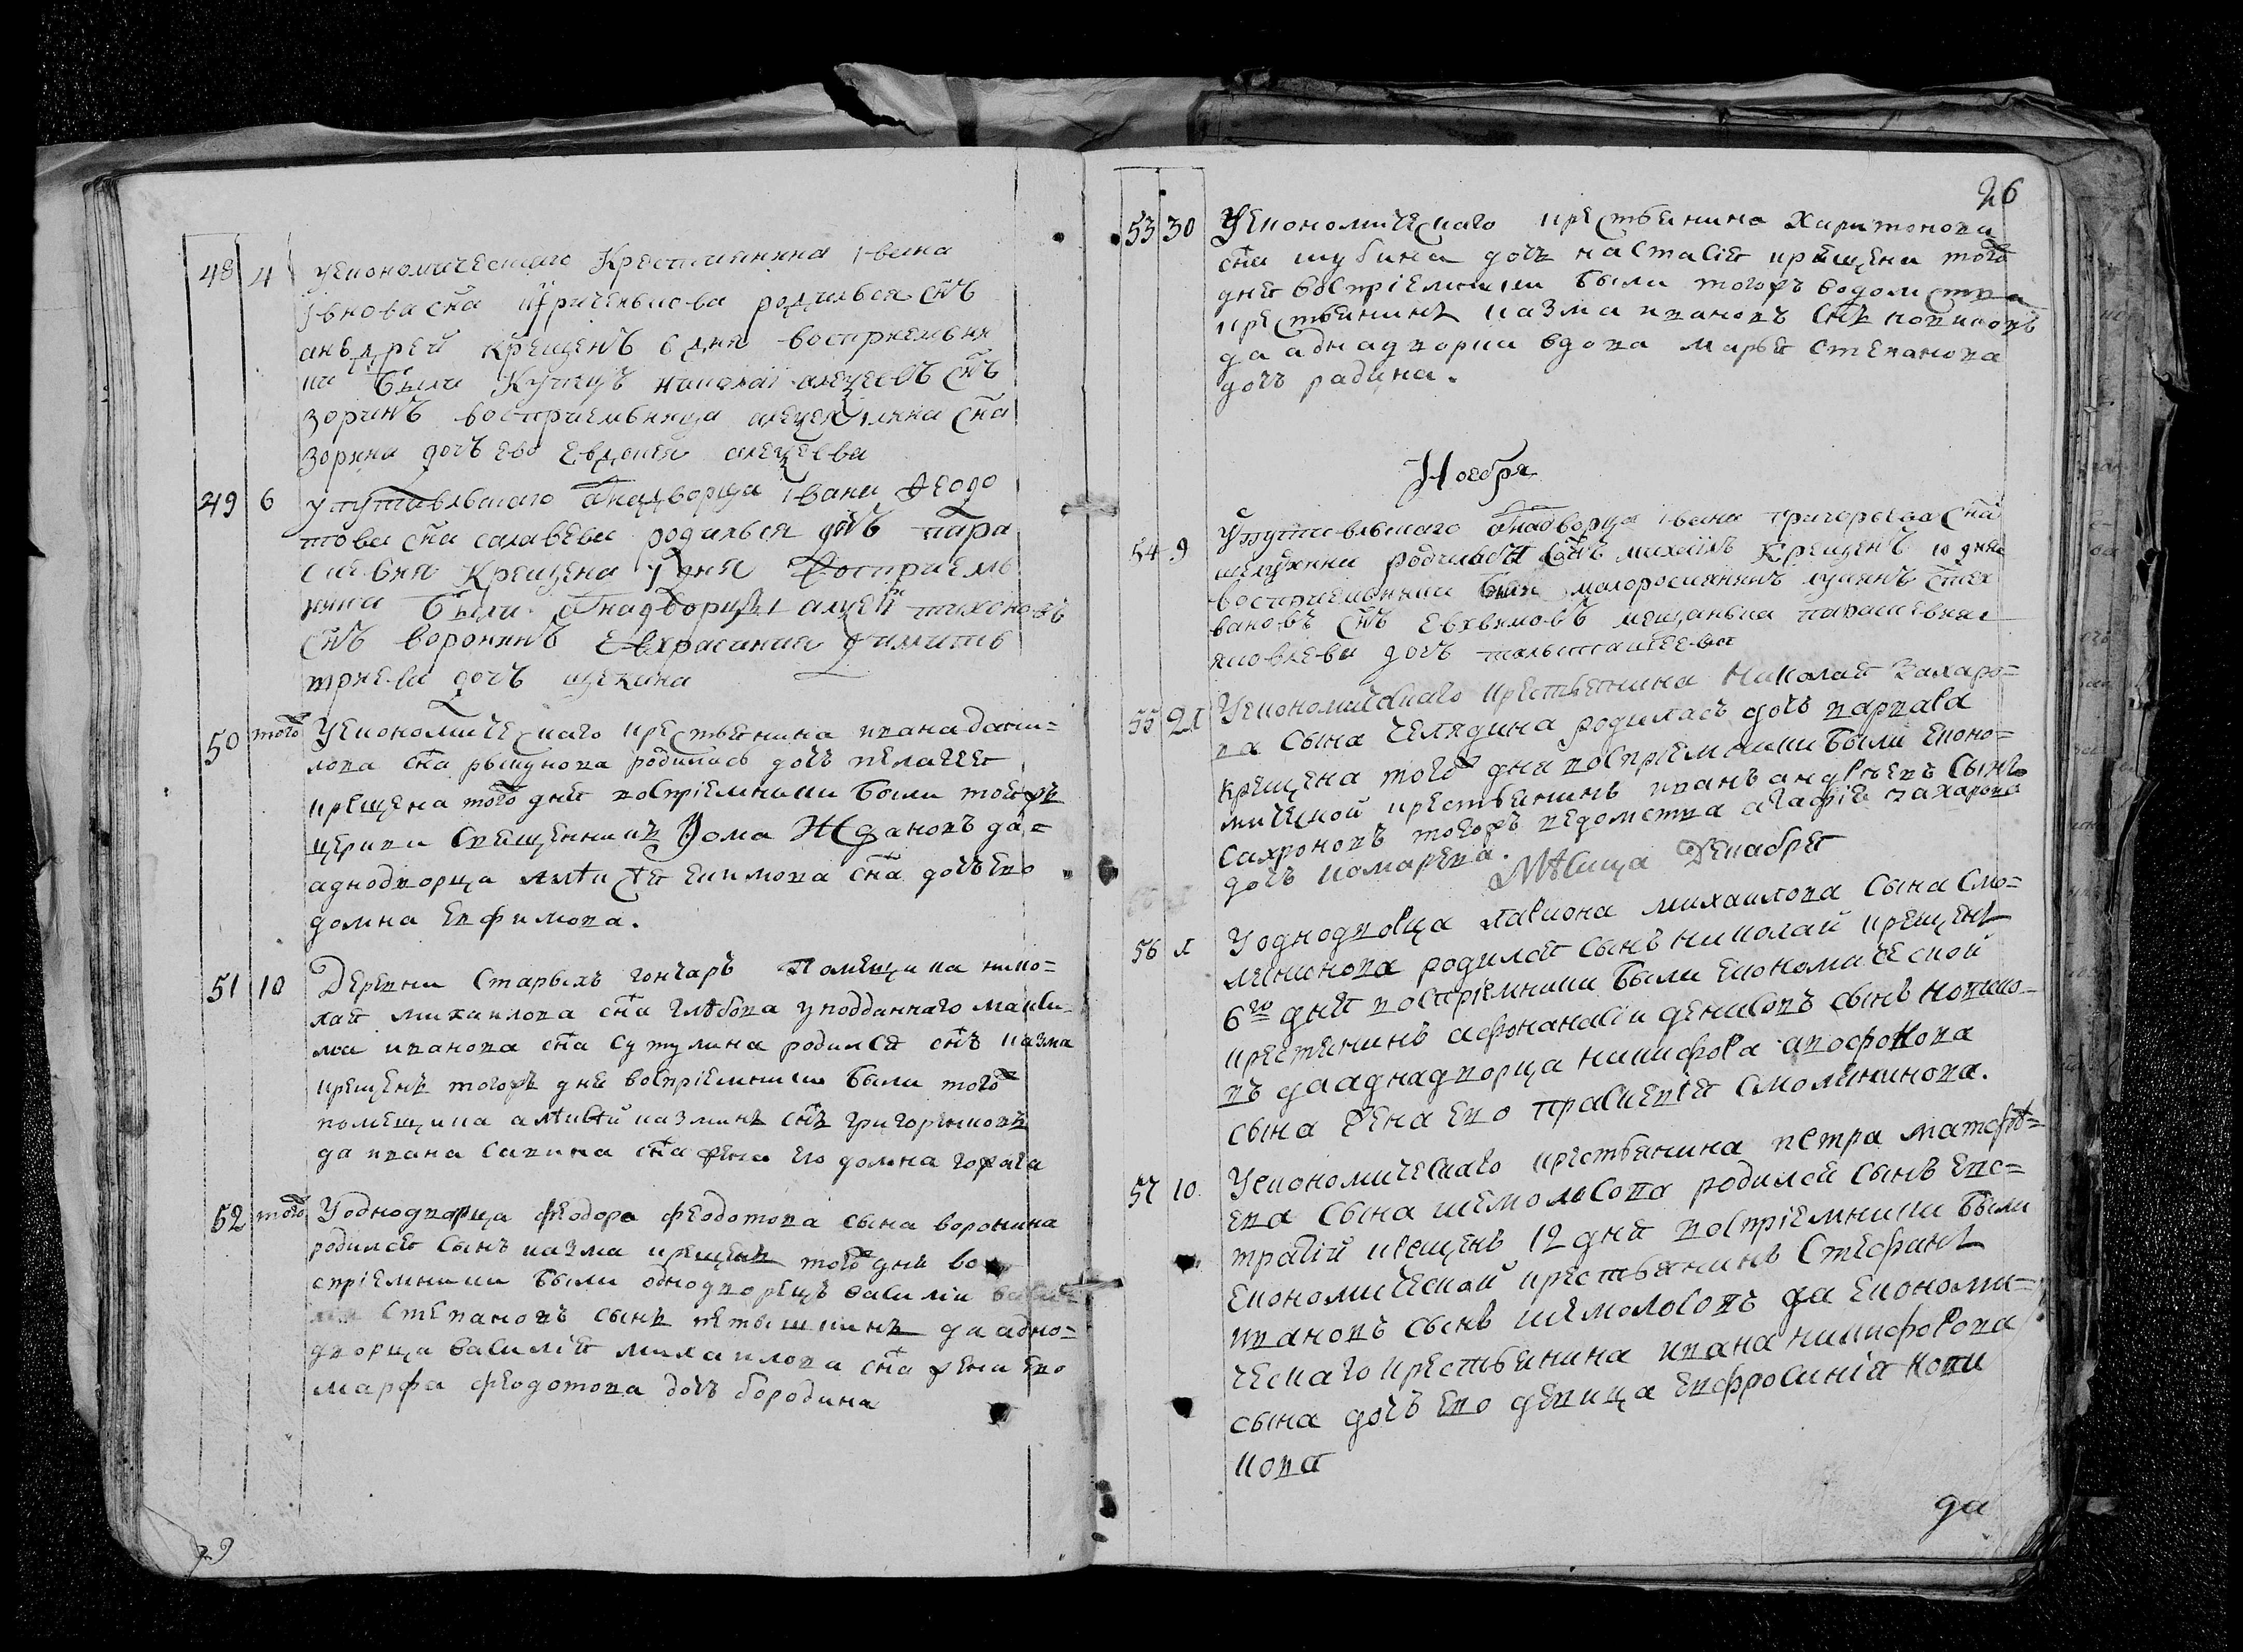 48 4 уекономическаго Крестиянина Ивана
Iвнова сна родилься снъ
анъдрей крещенъ 6 дня восприемьни
ки были Купецъ николаi алеѯеевъ снъ
зоринъ восприемьница алеѯея сна
зорина дочъ ево Евдокея алеѯеева
49 6 упутивльскаго аднадворца Iвана Феодо
това сна салавьева родилься дочъ пара
скевья Крещена дня восприемь
ники были аднадворцы алѯей тихоновъ
снъ воронинъ Евхрасиния димить
триева дочъ щекина
50 того Уекономическаго крестьянина ивана дани=
лова сна рышкова родилась дочъ пелагея
крещена того дня восприемники были тояжъ
церкви священникъ Фома Ждановъ да=
аднодворца екимова сна дочъ ево
домна Евфимова.
51 10 Деревни Старыхъ гончаръ Помещика нико=
лая михаилова сна глѣбова уподданнаго макси=
ма иванова сна сутулина родился снъ казма
крещенъ тогожъ дня воспрiемники были того
помещика алѣксѣй казминъ снъ григорьиковъ
да ивана савина сна жена его домна
52 того Уоднодворца феодора феодотова сына воронина
родился сынъ казма крещенъ того дня во
спрiемники были однодворецъ василiи
Степановъ сынъ петышкинъ да адно=
дворца василiя михаилова сна жена ево
марфа феодотова дочъ бородина
29
26
53 30 Уекономическаго крестьянина Харитонова
сна шубина дочъ настасiя крещена того
дня воспрiемники были тогожъ ведомства
крестьянинъ казма ивановъ снъ новиковъ
да аднадворка вдова марья степанова
дочъ радина.
Ноебря
54 9 Упутивльскаго аднадворца iвана григорьева сна
шелухина родилься снъ михаiлъ Крещенъ 10 дня
восприемники были малоросиянинъ лукянъ
вановъ снъ Евхвимовъ мещанька парасковея
яковлева дочъ
55 21 Уекономическаго крестьянина Николая Захаро=
ва сына челядина родилась дочъ варвара
крещена того дня воспрiемники были еконо=
мической крестьянинъ иванъ андреевъ сынъ
сахроновъ тогожъ ведомства агафiя захарова
дочъ комарева.
Мѣсяца Декабря
56 1 Уоднодворца лариона михаилова сына смо=
лянинова родился сынъ николай крещенъ
6го дня воспрiемники были економической
крестянинъ афонанасiи денисовъ сынъ новико=
въ дааднадворца никифора агофонова
сына жена ево прасковiя смолянинова.
57 10 Уекономическаго крестьянина петра матфѣ=
ева сына шемолисова родился сынъ евс=
тратiй крещенъ 12 дня воспрiемники были
економической крестьянинъ стефанъ
ивановъ сынъ шемолосовъ да економи=
ческаго крестьянина ивана никифорова
сына дочъ ево девица евфросинiя нови
кова
да